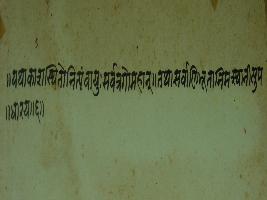 ॥यथाकाशस्थितोनित्यंवायुःसर्वत्रगोमहान्॥तथासर्वाणिभूतानिमत्स्थानीत्युप
॥धारय॥६॥